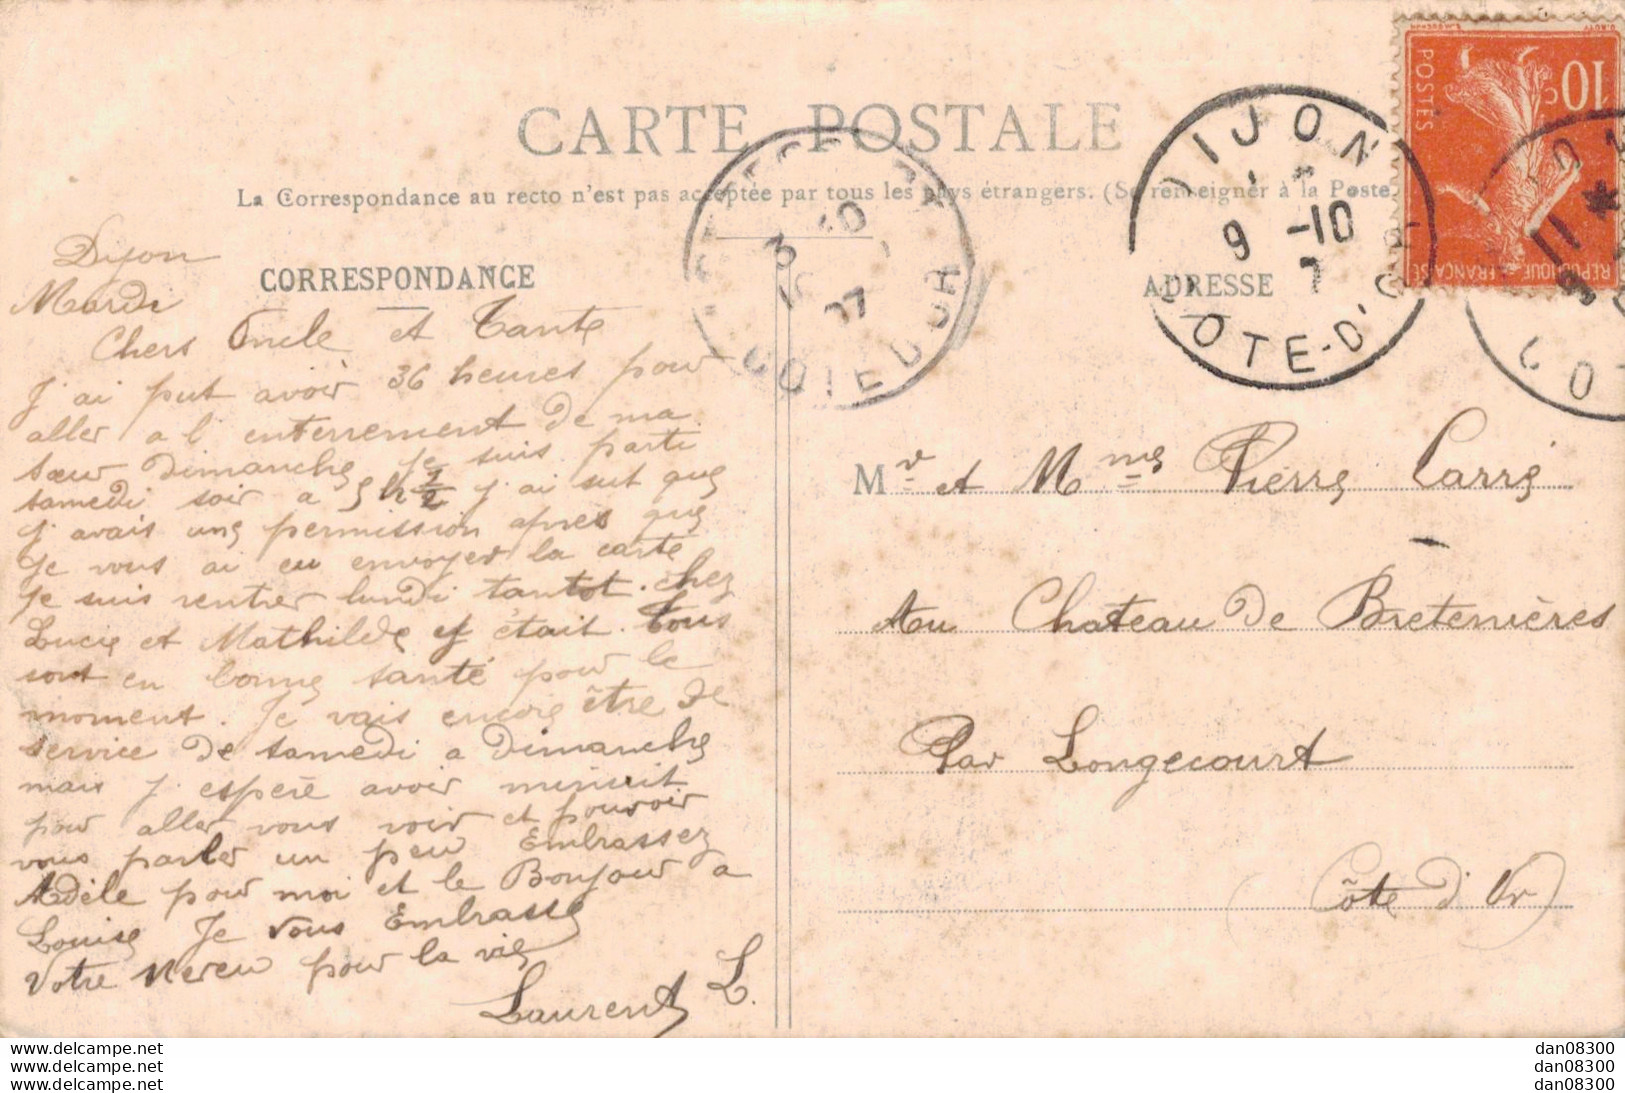 CARTE POSTALE
La Correspondance au recto n'est pas acceptée par tous les pays étrangers. (Se renseigner à la Poste
CORRESPONDANCE
ADRESSE
Dijon
Mardi
Chers Oncle et Tante
J'ai put avoir 36 heures pour
aller a l'enterrement de ma
sœur Dimanche, je suis parti
samedi soir a 5 h 1/2 j'ai sut que
j'avais une permission apres que
Je vous ai eu envoyer la carte
Je suis rentrer lundi tantot. chez
Lucie et Mathilde ej était. Tous
sont en bonne santé pour le
moment. Je vais encore être de
service de samedi a Dimanche
mais j'espère avoir minuit
pour aller vous voir et pouvoir
vous parler un peu Embrassez
Adèle pour moi et le Bonjour a
Louise Je vous Embrasse
Votre Neveu pour la vie
Laurent L.
Mr et Mme Pierre Carré
Au Chateau de Bretenières
Par Longecourt
(Côte d'Or)
DIJON
9 -10
7
COTE-D'OR
3 10
07
COTE D'OR
11 *
POSTES
10c
REPUBLIQUE FRANÇAISE
www.delcampe.net dan08300
www.delcampe.net dan08300
www.delcampe.net dan08300